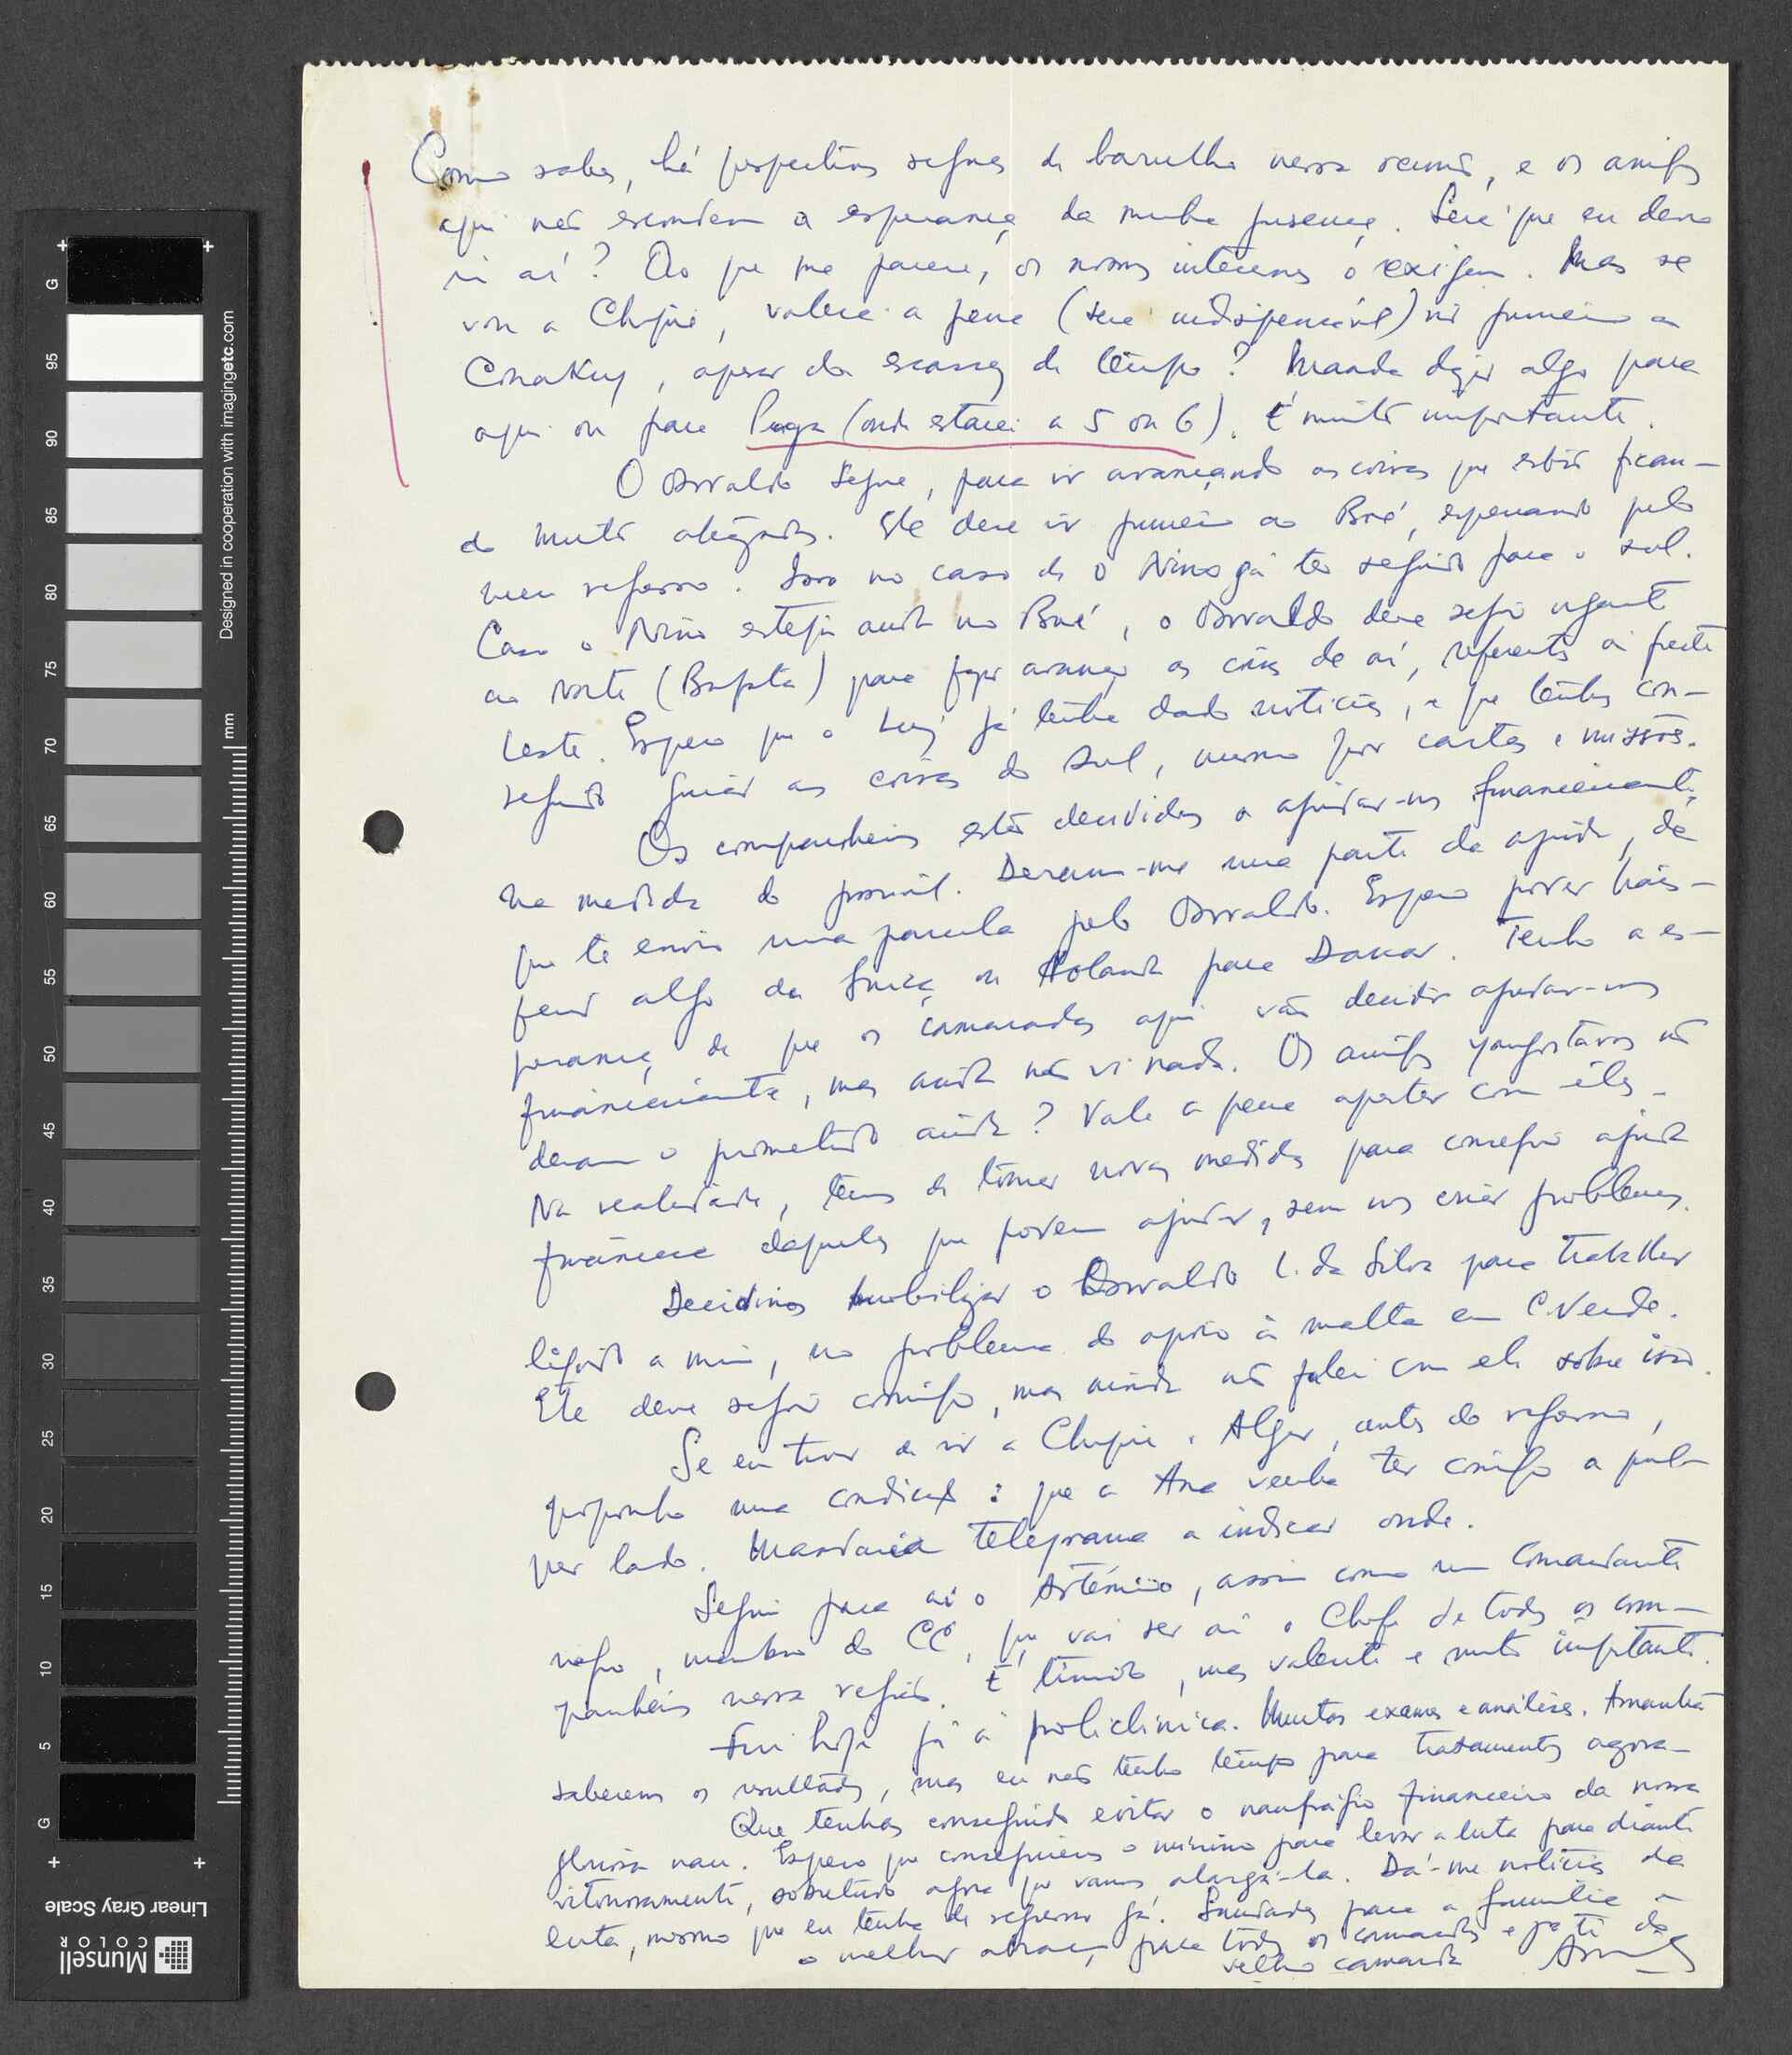 Como sabes, há perspectivas seguras de barulho nessa reunião, e os amigos
aqui não escondem a esperança da minha presença. Será que eu devo
ir aí? Ao que me parece, os nossos interesses o exigem. Mas se
vou a Chipre, valerá a pena (será indispensável) ir primeiro a
Conakry, apesar da escassez de tempo? Manda dizer algo para
aqui ou para Praga (onde estarei a 5 ou 6). É muito importante.
O Osvaldo segue, para ir avançando as coisas que estão fican-
do muito atrazadas. Ele deve ir primeiro ao Boé, esperando pelo
meu regresso. Isso no caso de o Nino já ter seguido para o sul.
Caso o Nino esteja ainda no Boé, o Osvaldo deve seguir urgente
ao norte ( ) para fazer avançar as coisas de aí, referentes à frente
leste. Espero que o Luiz já tenha dado notícias, e que tenhas con-
seguido guiar as coisas do sul, mesmo por cartas e missões.
Os companheiros estão decididos a ajudar-nos financeiramente,
na medida do possível. Deram-me uma parte da ajuda, da
que te envio uma parcela pelo Osvaldo. Espero poder trans-
ferir algo da Suiça ou Holanda para Dakar. Tenho a es-
perança de que os camaradas aqui vão decidir ajudar-nos
financeiramente, mas ainda não vi nada. Os amigos yougoslavos não
deram o prometido ainda? Vale a pena apertar com êles.
Na realidade, temos de tomar novas medidas para conseguir ajuda
financeira daqueles que podem ajudar, sem nos criar problemas.
Decidimos mobilizar o Osvaldo L. da Silva para trabalhar
ligado a mim, no problema do apoio à malta em C. Verde.
Ele deve seguir comigo, mas ainda não falei com ele sobre isso.
Se eu tiver de ir a Chipre e Alger, antes do regresso,
proponho uma condição: que a Ana venha ter comigo a qual-
quer lado. Mandarei telegrama a indicar onde.
Segue para aí o Artémio, assim como um Comandante
negro, membro do CC, que vai ser aí o Chefe de todos os com-
panheiros nessa região. É tímido, mas valente e muito importante.
Fui hoje já à policlínica. Muitos exames e análises. Amanhã
saberemos os resultados, mas eu não tenho tempo para tratamentos agora.
Que tenhas conseguido evitar o naufrágio financeiro da nossa
gloriosa nau. Espero que conseguiremos o mínimo para levar a luta para diante
vitoriosamente, sobretudo agora que vamos alargá-la. Dá-me notícias da
luta, mesmo que eu tenha de regressar já. Saudades para a família e
o melhor abraço para todos os camaradas e para ti do
velho camarada